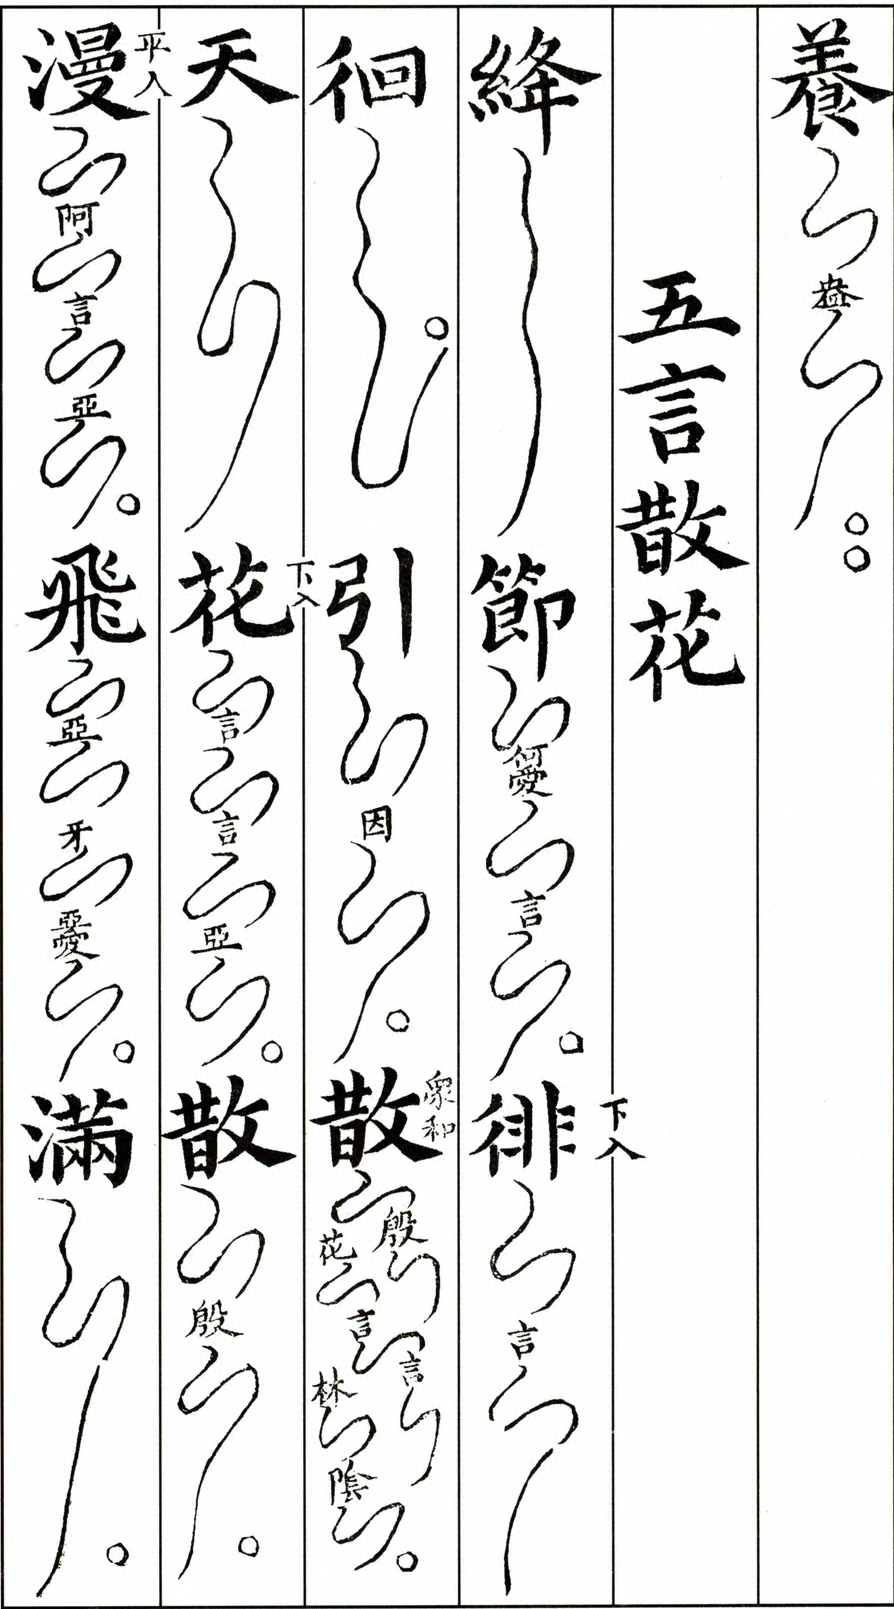 養盎
五言散花
絳節何愛言徘下入言
徊引因散衆和殷花言言林陰
天花下入言言亞散殷
漫平入阿言亞飛亞牙亞愛滿